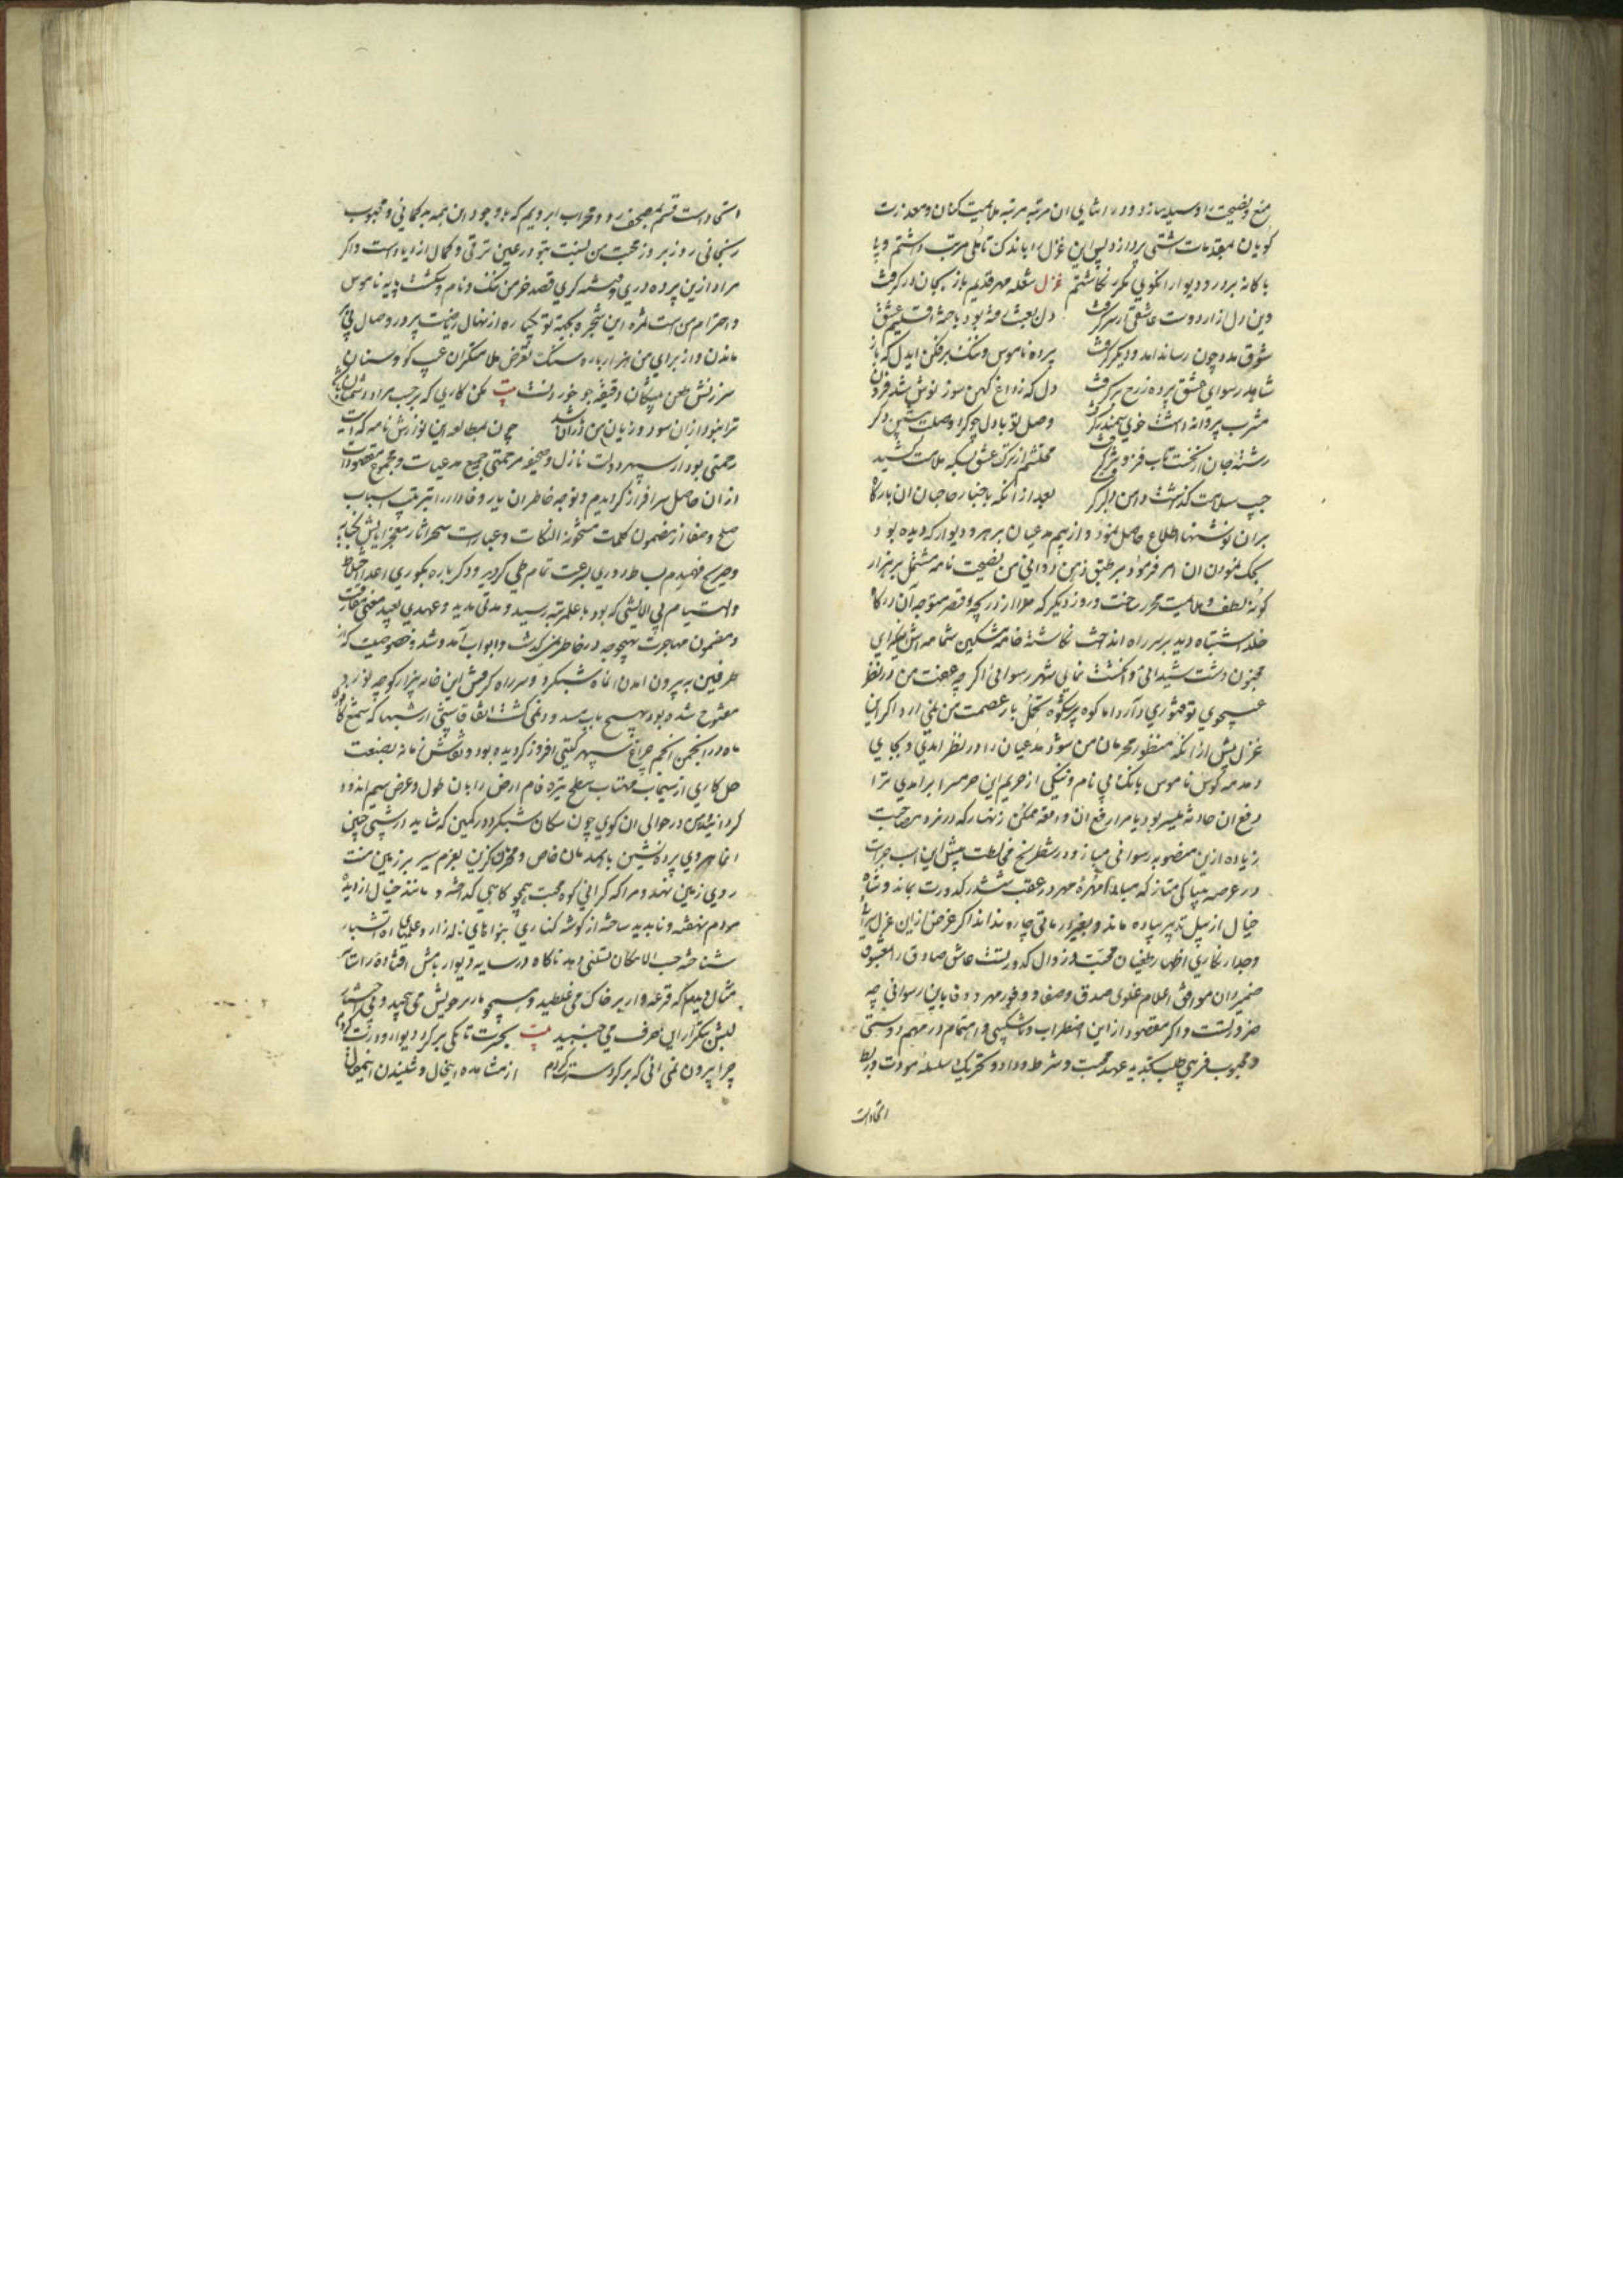 منع و نصیحت را وسیله سازد و در اثنای ان مرتبه مرتبه ملایمت کنان و معذرت
کویان بمقدمات اشتی پردازد پس این غزل را باندک تاملی مرتب داشتم و پا
با کانه بر در و دیوار انکوی مکرر نکاشتم غزل شعله مهر قدیم باز بجان در کرفت
وین دل ازار دوست عاشقی از سر کرفت دل بعشق بود باخته اقلیم عشق
شوق مدد چون رساند امد و دیکر کرفت پرده ناموس و ننک برفکن ایدل که باز
شاهد رسوای عشق پرده ز رخ بر کرفت دل که ز داغ کهن سوز نوش شد فزون
مشرب پروانه داشت خوی سمندر کرفت وصل تو با دل چو کرد وصلت پیشین دکر
رشته جان از نخست تاب فزونتر کرفت محتشم از ترک عشق بسکه ملامت کشید
جیب سلامت کذاشت دامن دلبر کرفت بعد از انکه باخبار حاجبان ان بارکاه
بران نوشتها اطلاع حاصل نمود و از بیم مدعیان بر هر در و دیوار که دیده بود
بحک نمودن ان امر فرمود و بر طبق زهن زدائی من نصیحت نامه مشتمل بر هزار
کونه لطف و ملایمت محرر ساخت و روز دیکر که ملا از دریچه قصر متوجه ان درکاه
خلد اشتباه دید بر سر راه انداخت نکاشته خامه مشکین شمامه اش اینکه ای
مجنون دشت شیدائی و انکشت نمای شهر رسوائی اکر چه عفت من در نظر
غزل پیش از انکه منظور محرمان من شود مدعیان را در نظر امدی و بجای
دمدمه کوس ناموس بانک بی نام و ننکی از حریم این حرمسرا برامدی ترا
رفع ان حادثه میسر بود یا مرا رفع ان واقعه ممکن زنهار که در نرد مصاحبت
زیاده ازین منصوبه رسوائی مباز و در شطرنج مخالطت پیش ازین اسب جرات
در عرصه بیباکی متاز که مبادا مهره مهر در عقب ششدر کدورت بماند و شاه
خیال از پیل تدبیر پیاده ماند و بغیر از ماتی چاره نداند اکر غرض ازین غزل سرائی
و جدار نکاری اظهار طغیان محبت و زوال کدورتست عاشق صادق را معشوق
ضمیردان موافق اعلام غلوی صدق و صفا و وفور مهر و وفا باین رسوائی چه
ضرورتست و اکر مقصود از این اضطراب و ناشکیبی و اهتمام در مهم دوستی
و محبوب فریبی طلب تجدید عهد محبت و شرط وداد و تحریک سلسله مودت و ربط
اتحادست
اتحادست قسم بمصحف رو و محراب ابرویم که با وجود این همه بدکمانی و محبوب
رنجانی روز بروز محبت من نسبت بتو در عین ترقی و کمال ازدیادست و اکر
مراد ازین پرده دری و فتنه کری قصد خرمن ننک و نام و شکست پایه ناموس
و احترام من است ثمره این شجره بجهة تو یکباره از نهال ریاضت پرور وصال بی بر
ماندن و از برای من هزار باره سنک تعرض ملامتکران عیب کو و سنان
سرزنش طعن پیشکان دقیقه جو خوردنست بیت مکن کاری که بر حسب مراد دشمنان باشد
ترا نبود ازان سود و زیان من دران باشد چون بمطالعه این نوازش نامه که ایت
رحمتی بود از سپهر دولت نازل و صحیفه مرحمتی جمیع مدعیات و مجموع مقصودات
ازان حاصل سرافراز کردیدم و توجه خاطر ان یار وفادار را بترتیب اسباب
صلح و صفا از مضمون کلمات مشحونة النکات و عبارات سحر اثار معجز ایاتش بکنایه
و صریح فهمیدم بساط دوری بسرعت تمام طی کردید و دکرباره بکوری اعدا اختلاط
والتیام بی الایشی که بود باعلی مرتبه رسید و مدتی مدید و عهدی بعید معنی مفارقت
و مضمون مهاجرت بهیچوجه در خاطر من نکذشت و ابواب آمد و شد و خصوصیت که از
طرفین به بیرون امدن انماه شبکرد و سر راه کرفتن این خانه بیزار کوچه نورد
مفتوح شده بود بهیچ باب مسدود نمی کشت اتفاقا شبی از شبها که شمع
ماه در انجمن انجم چراغ سپهر کیتی افروز کردیده بود و نقاش زمانه بصنعت
حل کاری از سیماب مهتاب سطح تیره فام ارض را بان طول و عرض سیم اندود
کردانیده من در حوالی ان کوی چون سکان شبکرد در کمین که شاید در شبی چنین
انماهروی پرده نشین با همدمان خاص و محرمان کزین بعزم سیر بر زمین منت
روی زمین نهد و مرا که کرانی کوه محبت همچو کاهی کداخته و مانند خیال از دیده
مردم نهفته و ناپدید ساخته از کوشه کناری بنواهای ناله زار و علامات اه اتشبار
شناخته حسب الامکان تسلی دهد ناکاه در سایه دیوار بامش افتاده را سایه
مثال دیدم که قرعه وار بر خاک می غلطید و همچو مار بر خویش می پیچید و بی اختیار
لبش بتکرار این حرف می جنبید بیت بحسرت تا بکی بر کرد دیوار و درت کردم
چرا بیرون نمی ائی که بر کرد سرت کردم از مشاهده اینحال و شنیدن اینمقال